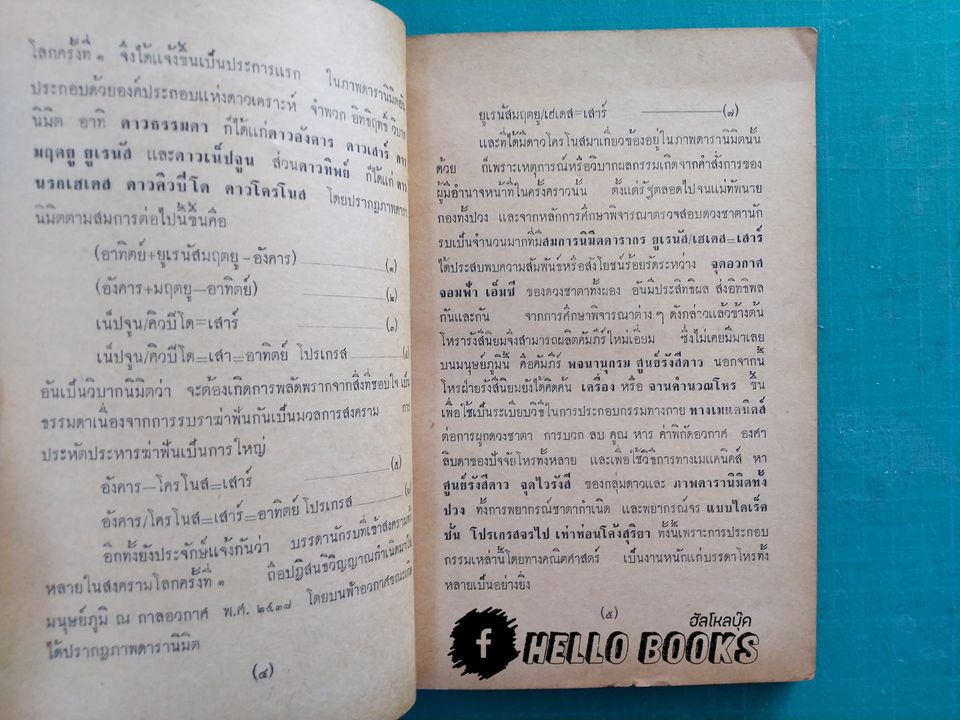 โลกครั้งที่ ๑ จึงได้แจ้งขึ้นเป็นประการแรก ในภาพดารานิมิตอัน
ประกอบด้วยองค์ประกอบแห่งดาวเคราะห์ จำพวก อิทธิฤทธิ์ วิบาก
นิมิต อาทิ ดาวธรรมดา ก็ได้แก่ดาวอังคาร ดาวเสาร์ ดาว
มฤตยู ยูเรนัส และดาวเน็ปจูน ส่วนดาวทิพย์ ก็ได้แก่ ดาว
นรกเฮเดส ดาวคิวบีโด ดาวโครโนส โดยปรากฏภาพดารา
นิมิตตามสมการต่อไปนี้ขึ้นคือ
(อาทิตย์+ยูเรนัสมฤตยู-อังคาร) (๑)
(อังคาร+มฤตยู—อาทิตย์) (๒)
เน็ปจูน/คิวบีโด=เสาร์ (๓)
เน็ปจูน/คิวบีโด=เสา=อาทิตย์ โปรเกรส (๔)
อันเป็นวิบากนิมิตว่า จะต้องเกิดการพลัดพรากจากสิ่งที่ชอบใจ เป็น
ธรรมดาเนื่องจากการรบราฆ่าฟันกันเป็นมวลการสงคราม การ
ประหัตประหารฆ่าฟันเป็นการใหญ่
อังคาร—โครโนส=เสาร์ (๕)
อังคาร/โครโนส=เสาร์=อาทิตย์ โปรเกรส
อีกทั้งยังประจักษ์แจ้งกันว่า บรรดานักรบที่เข้าสงครามทั้ง
หลายในสงครามโลกครั้งที่ ๑ ถือปฏิสนธิวิญญาณกำเนิดมาใน
มนุษย์ภูมิ ณ กาลอวกาศ พ.ศ. ๒๔๓๗ โดยบนฟ้าอวกาศขณะเกิด
ได้ปรากฏภาพดารานิมิต
(๔)
ยูเรนัสมฤตยู/เฮเดส=เสาร์ (๗)
และที่ได้มีดาวโครโนสมาเกี่ยวข้องอยู่ในภาพดารานิมิตนั้น
ด้วย ก็เพราะเหตุการณ์หรือวิบากผลกรรมเกิดจากคำสั่งการของ
ผู้มีอำนาจหน้าที่ในครั้งคราวนั้น ตั้งแต่รัฐตลอดไปจนแม่ทัพนาย
กองทั้งปวง และจากหลักการศึกษาพิจารณาตรวจสอบดวงชาตานัก
รบเป็นจำนวนมากที่มีสมการนิมิตดารากร ยูเรนัส/เฮเดส=เสาร์
ได้ประสบพบความสัมพันธ์หรือสังโยชน์ร้อยรัดระหว่าง จุดอวกาศ
จอมฟ้า เอ็มซี ของดวงชาตาทั้งผอง อันมีประสิทธิผล ส่งอิทธิพล
กันและกัน จากการศึกษาพิจารณาต่าง ๆ ดังกล่าวแล้วข้างต้น
โหรารังสีนิยมจึงสามารถผลิตคัมภีร์ใหม่เอี่ยม ซึ่งไม่เคยมีมาเลย
บนมนุษย์ภูมินี้ คือคัมภีร์ พจนานุกรม ศูนย์รังสีดาว นอกจากนี้
โหรฝ่ายรังสีนิยมยังได้คิดค้น เครื่อง หรือ จานคำนวณโหร ขึ้น
เพื่อใช้เป็นระเบียบวิธีในการประกอบกรรมทางกาย ทางเมแคนิคส์
ต่อการผูกดวงชาตา การบวก ลบ คูณ หาร ค่าพิกัดอวกาศ องศา
ลิบดาของปัจจัยโหรทั้งหลาย และเพื่อใช้วิธีการทางเมแคนิคส์ หา
ศูนย์รังสีดาว จุดไวรังสี ของกลุ่มดาวและ ภาพดารานิมิตทั้ง
ปวง ทั้งการพยากรณ์ชาตากำเนิด และพยากรณ์จร แบบไดเร็ค
ชั่น โปรเกรสจรไป เท่าท่อนโค้งสุริยา ทั้งนี้เพราะการประกอบ
กรรมเหล่านี้โดยทางคณิตศาสตร์ เป็นงานหนักแก่บรรดาโหรทั้ง
หลายเป็นอย่างยิ่ง
(๕)
ฮัลโหลบุ๊ค
f HELLO BOOKS